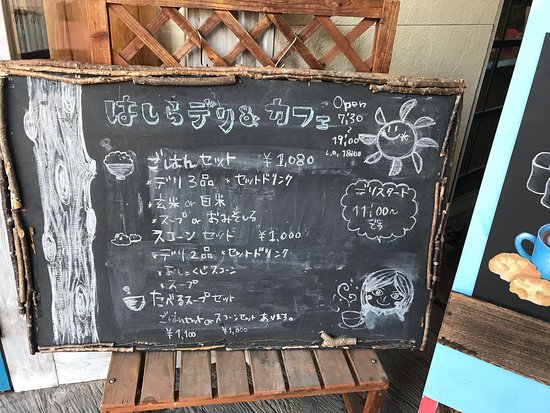 はしらデリ&カフェ
Open
7:30
19:00
L.O. 18:00
ごはんセット ¥1,080
*デリ3品 *セットドリンク
*玄米 or 白米
*スープ or おみそしる
スコーンセット ¥1,000
*デリ2品 *セットドリンク
*スコーン
*スープ
たべるスープセット
ごはんセット or スコーンセット あります。
¥1,100 ¥1,000
デリスタート
11:00~